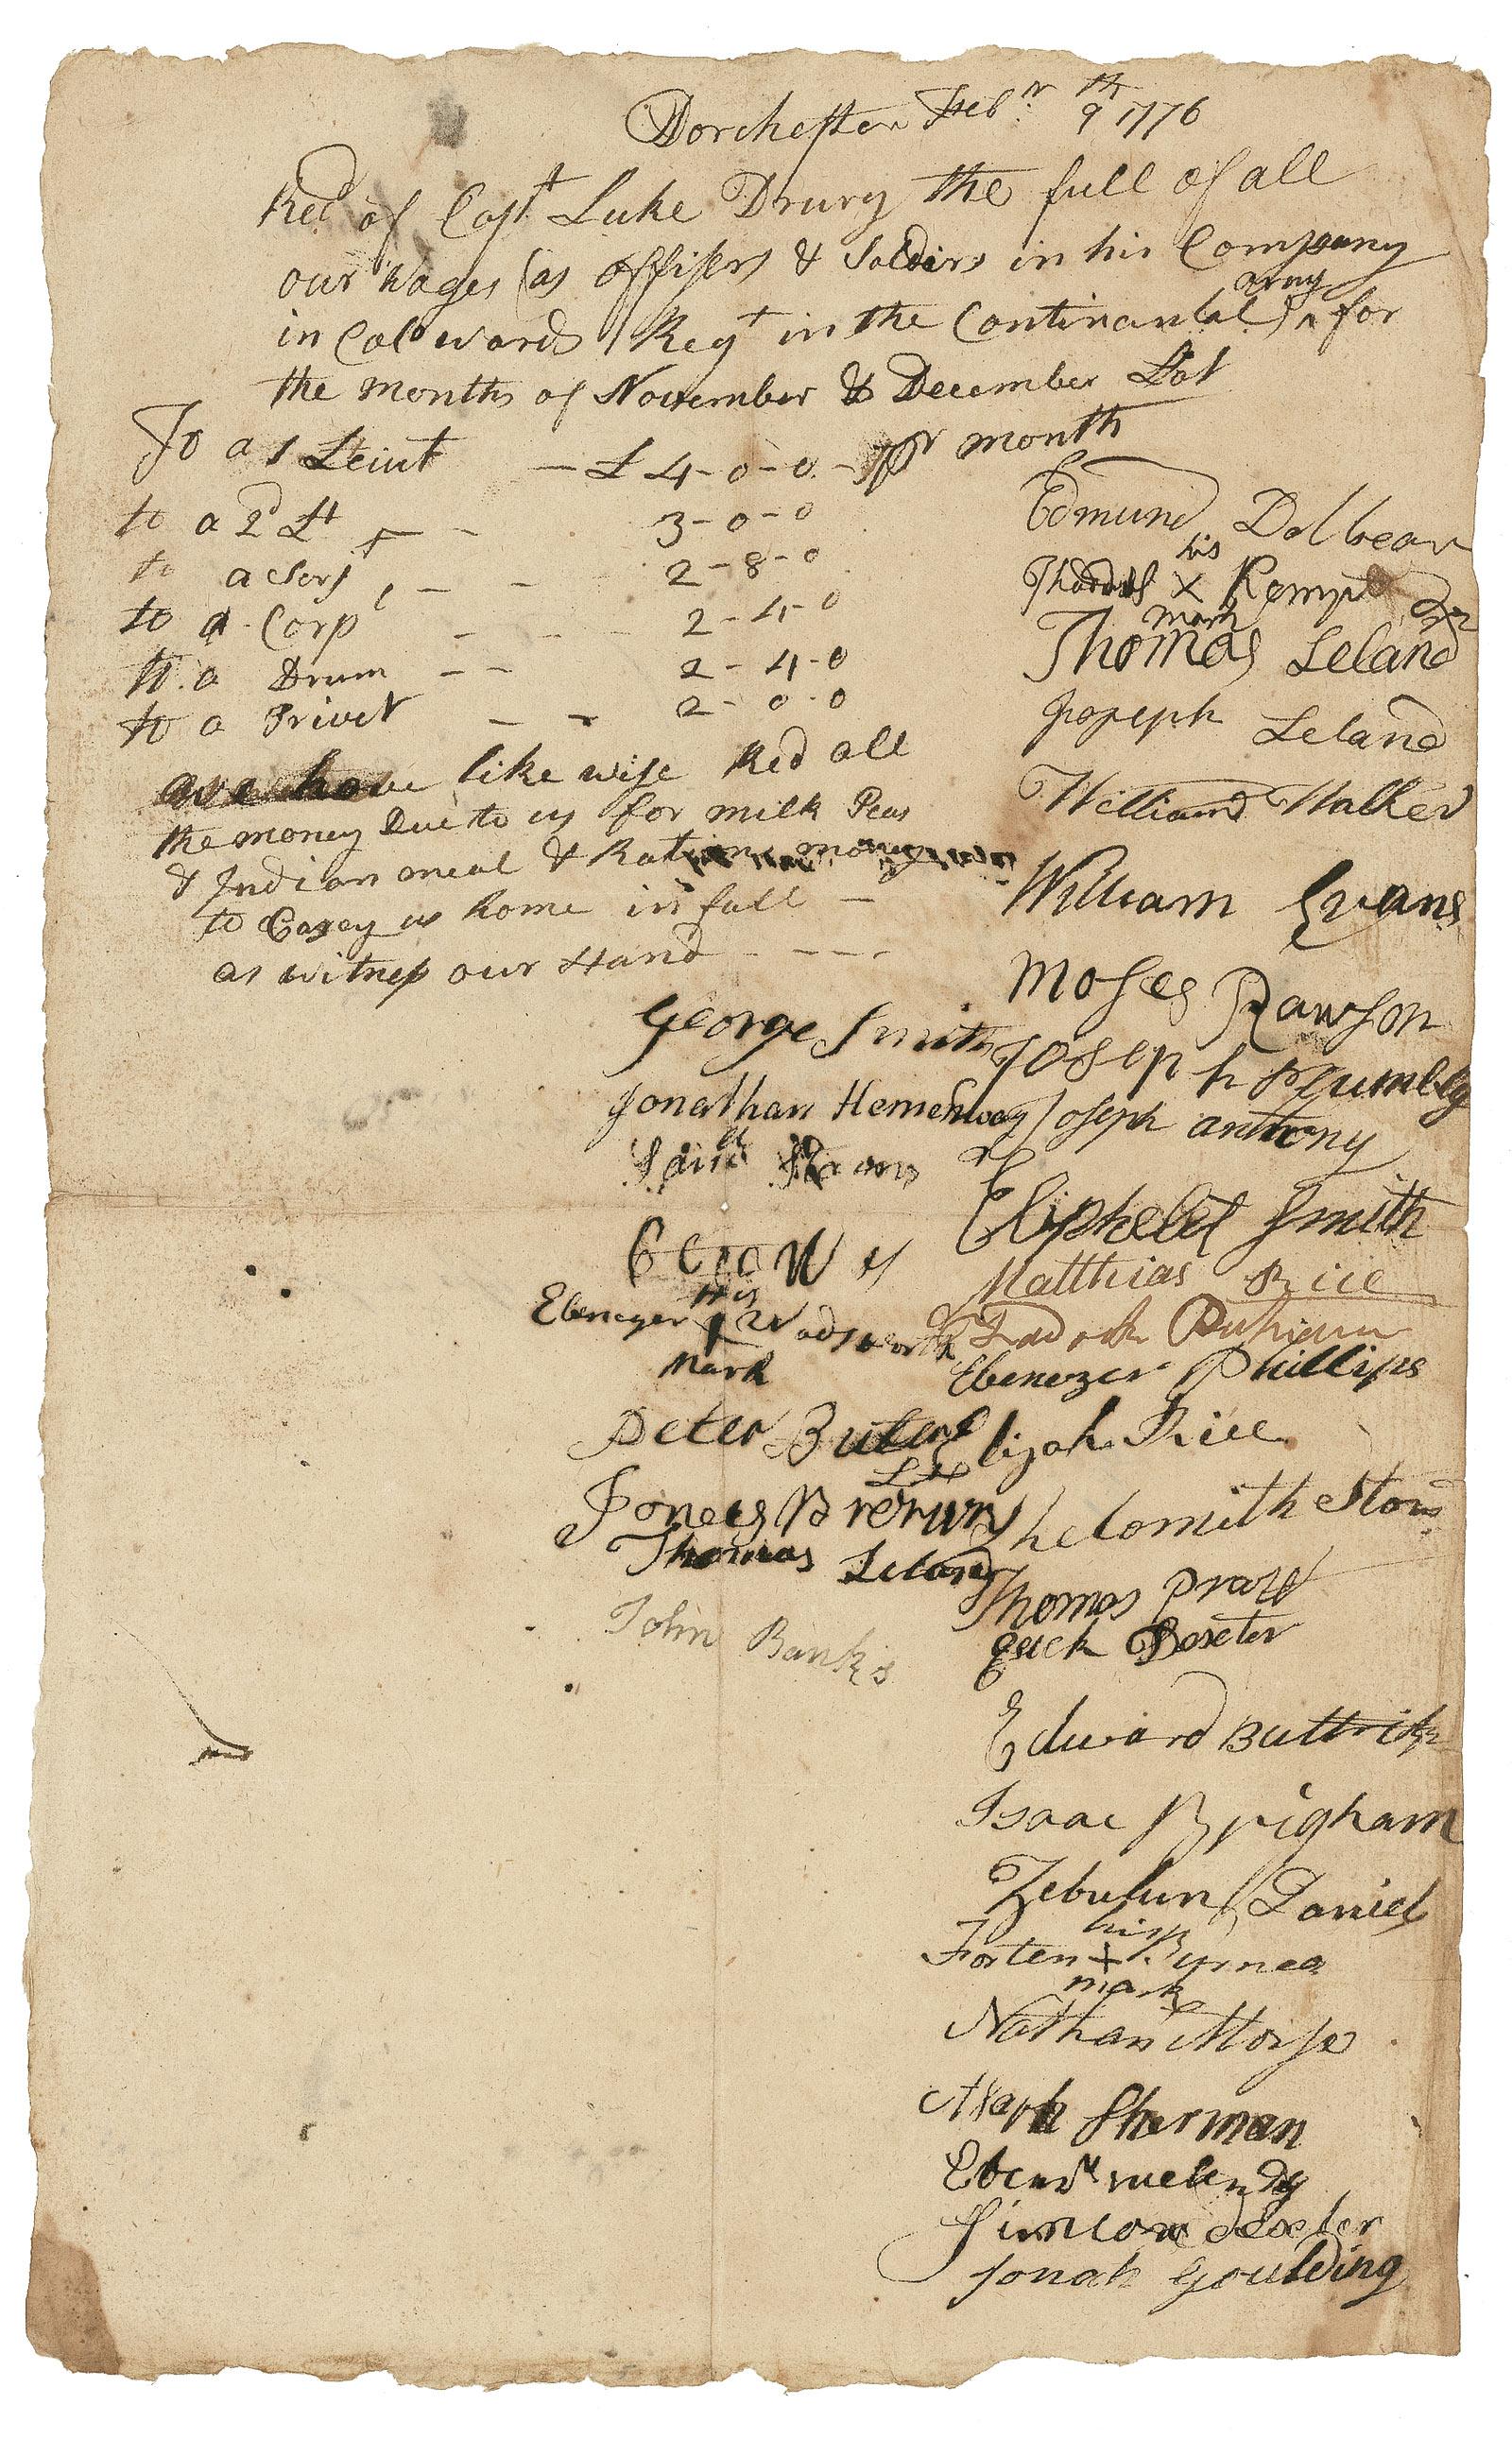 Dorchester Febr 9th 1776
Recd of Capt Luke Drury the full of all
our Wages (as offisers & Soldirs in his Company
in Col Wards Regt in the Continantal) army for
the months of November & December Last
To a 1 Leiut — £ 4-0-0 - pr month
to a 2d Lt - - 3-0-0
to a Serjt, - - 2-8-0
to a Corpl - - - 2-4-0
to a Drum - - 2-4-0
to a Privet - - 2-0-0
we have like wise Recd all
the money Due to us for milk Peas
& Indian meal & Ration money
to Carey us home in full —
as witness our Hand - - - -
Edmund Dolbear
Thomas his X mark Kemp
Thomas Leland
Joseph Leland
William Walker
William Evans
Moses Rawson
George Smith
Joseph
Jonathan Hemenway
Joseph anthony
Eliphelet Smith
Matthias Rice
Ebenezer his mark Wadsworth
Ebenezer Phillips
Peter Butler
Elijah Rice
Jones Brewn
Shelomith Stow
Thomas Leland
Thomas Pratt
John Banks
Dexeter
Edward Buttrick
Isaac Brigham
Zebulun Daniels
Forten his + mark Burnea
Nathan Morse
Asaph Sherman
Ebenr melendy
Simeon dexeter
Jonah Goulding